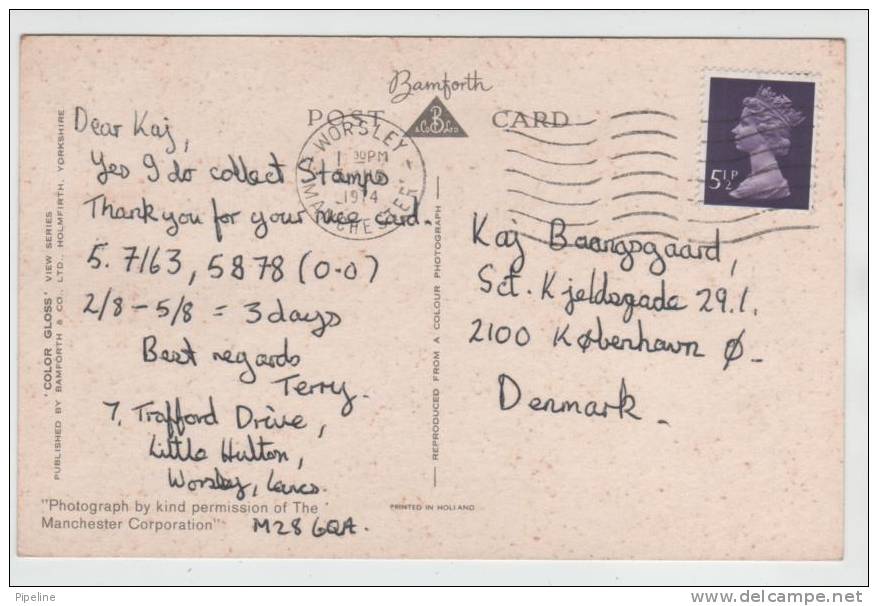 Bamforth
POST CARD
B
& Co Ltd
WORSLEY
PM
1974
MANCHESTER
5½P
Dear Kaj,
Yes I do collect Stamps
Thank you for your nice card.
5.7163, 5878 (0-0)
2/8 - 5/8 = 3 days
Best regards
Terry.
7, Trafford Drive,
Little Hulton,
Worsley, Lancs.
M28 6QA.
"Photograph by kind permission of The
Manchester Corporation"
'COLOR GLOSS' VIEW SERIES
PUBLISHED BY BAMFORTH & CO., LTD., HOLMFIRTH, YORKSHIRE
REPRODUCED FROM A COLOUR PHOTOGRAPH
PRINTED IN HOLLAND
Kaj Baangsgaard,
Sct. Kjeldsgade 29.1.
2100 København Ø.
Denmark.
Pipeline
www.delcampe.net